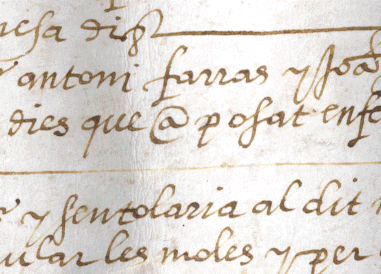 antoni farras y Joā
dies que @ posat enfe
y sentolaria al dit
ular les moles y per